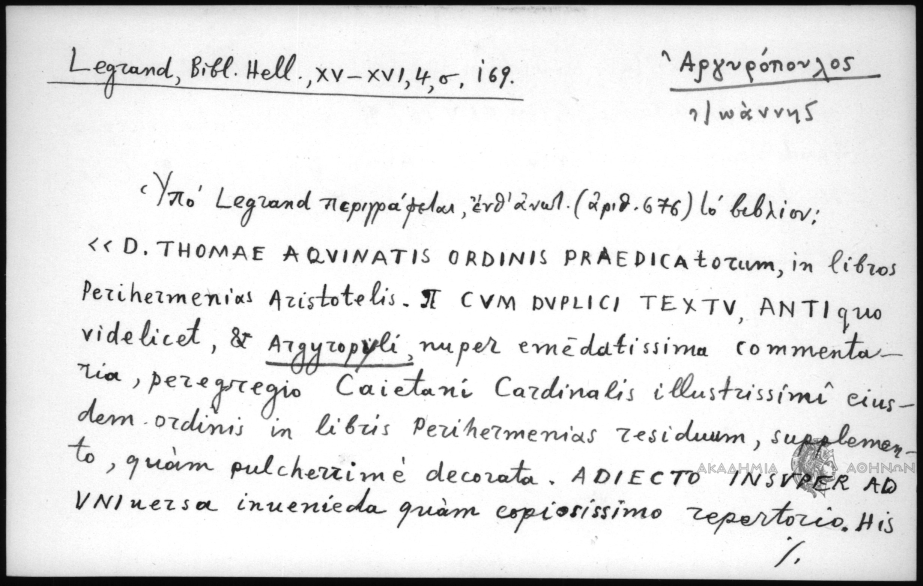 Legrand, Bibl. Hell., XV–XVI, 4, σ. 169.
Ἀργυρόπουλος
Ἰωάννης
Ὑπό Legrand περιγράφεται, ἐνθ' ἀνωτ. (ἀριθ. 676) τό βιβλίον:
<< D. THOMAE AQVINATIS ORDINIS PRAEDICAtorum, in libros
Perihermenias Aristotelis. π CVM DVPLICI TEXTV, ANTIquo
videlicet, & Argyropyli, nuper emēdatissima commenta–
ria, peregregio Caietani Cardinalis illustrissimi eius–
dem ordinis in libris Perihermenias residuum, supplemen–
to, quàm pulcherrimè decorata. ADIECTO INSVPER AD
VNIuersa inuenieda quàm copiosissimo repertorio. His
ΑΚΑΔΗΜΙΑ ΑΘΗΝΩΝ
./.